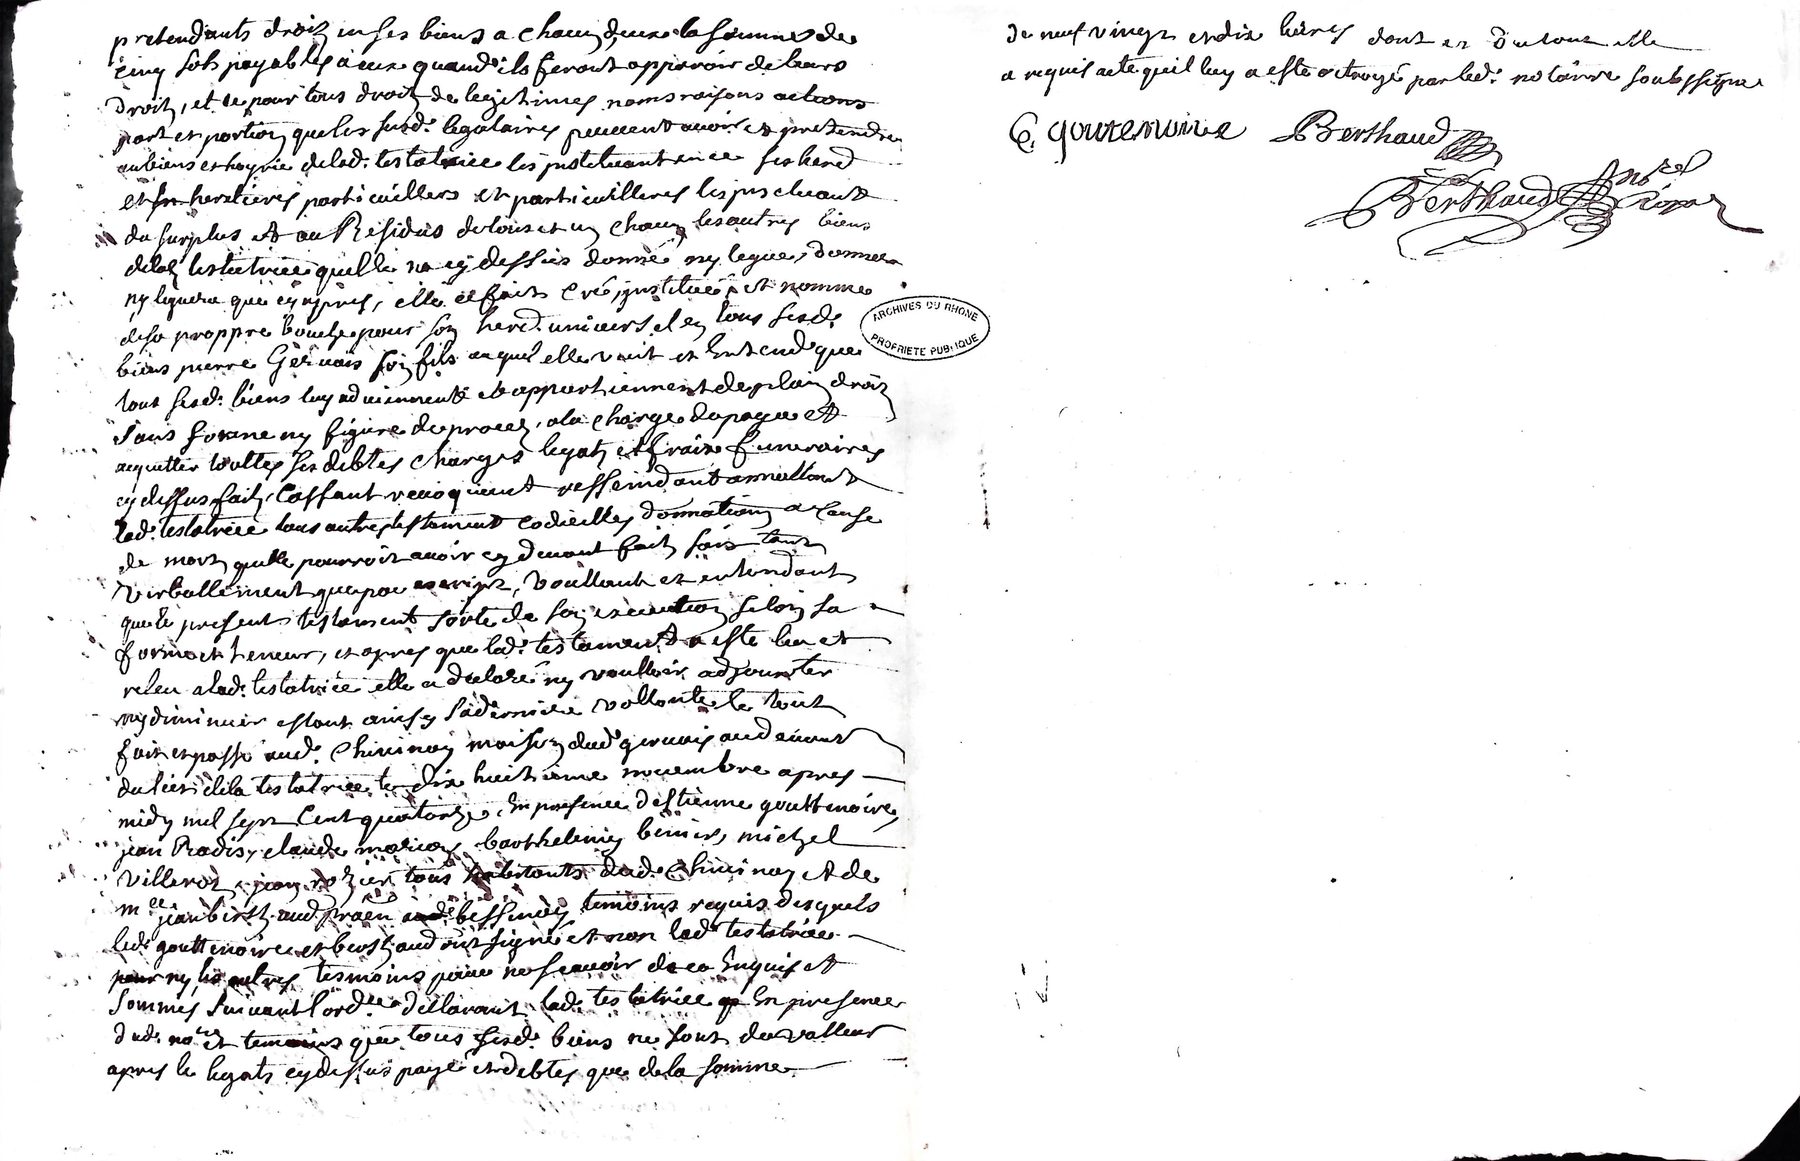 pretendants droit en ses biens a chacun deux la somme de
cinq sols payables a eux quand ils feront apparoir de leurs
droits, et ce pour tous droits de legitimes noms raisons actions
part et portion que les susd. legataires peuvent avoir et pretendre
aux biens et hoyrie de lad. testatrice les instituant en ce ses hered
et heritiers particuliers et particullieres les juscluant
du surplus et au Residus de tous et un chacuns les autres biens
de lad testatrice quelle na cy dessus donné ny legué, donnera
ny leguera que cy apres, elle a fait créé, institué et nomme
de sa proppre bouche pour son hered. universel en tous sesd.
biens pierre Gervais son fils auquel elle veut et Entend que
tout sesd. biens luy adviennent et appartiennent de plain droit
sans forme ny figure de procez, a la charge de payer et
acquitter touttes ses debtes charges legats et fraix funeraires
cy dessus faits, Cassant revoquant ressindant annullant
lad. testatrice tous autres testament codicilles donnations a cause
de mort quelle pourroit avoir cy devant fait soit tant
verballement que par escript, voullant et entendant
que le present testament sorte de son execution selon sa
forme et teneur, et apres que led. testament a esté leu et
releu a lad. testatrice elle a declaré ny voulloir adjouter
ny diminuer estant ainsy sa derniere vollonté le tout
fait et passé aud. Chivinay maison dud. gervais au devant
du lict de la testatrice le dix huitieme novembre apres
midy mil sept Cent quatorze, En presence d'estienne gouttenoire,
jean Radis, claude barthelemy michel
Villeroy, jean rozier tous habitants dud. Chivinay et de
mre jean berthaud praen bessenay temoins requis desquels
led. gouttenoire et berthaud ont signé et non lad. testatrice
pour ny les autres tesmoins pour ne scavoir de ce Enquis et
sommes suivant l'ordce declarant lad. testatrice En presence
dud. nore et temoins que tous sesd. biens ne sont de valleur
apres le legats cy dessus payé et debtes que de la somme
de neuf vingt et dix livres dont et du tout elle
a requis acte qu'il luy a esté octroyé par led. notaire soubssigné
E. goutenoire Berthaud
Berthaud nore royal
ARCHIVES DU RHONE
PROPRIETE PUBLIQUE